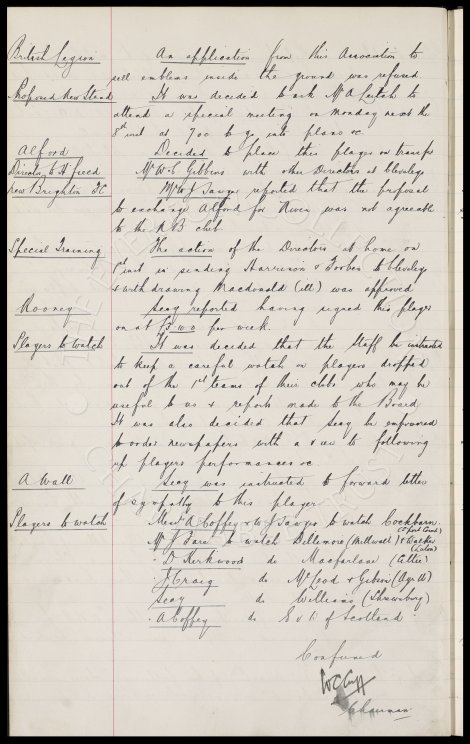 British Legion An application from this Association to
sell emblems inside the ground was refused
Proposed New Stand It was decided to ask Mr A Leitch to
attend a special meeting on Monday next the
8th inst at 7.00 to go into plans &c.
Alford Decided to place this player on transfer
Directors to H'field Mr W.C. Gibbins with other Directors at Cleveleys
New Brighton FC Mr W J Sawyer reported that the proposal
to exchange Alford for was not agreeable
to the N B club
Special Training The action of the Directors at home on
1st inst in sending Harrison & Forbes to Cleveleys
& withdrawing Macdonald (ill) was approved
Rooney Secy reported having signed this player
on at £3.0.0 per week.
Players to Watch It was decided that the Staff be instructed
to keep a careful watch on players dropped
out of the 1st teams of their clubs who may be
useful to us & reports made to the Board.
It was also decided that Secy be empowered
to order newspapers with a view to following
up players performances &c
A Wall Secy was instructed to forward letter
of sympathy to this player
Players to watch Messrs A Coffey & W J Sawyer to watch Cockburn
Mr J Bare to watch Dillimore (Millwall) &
(Luton)
" D Kirkwood do Macfarlane (Celtic)
J Craig do McLeod & Gibson (Ayr U)
Secy do Williams (Shrewsbury)
" A Coffey do E v of Scotland
Confirmed
W C Cuff
Chairman